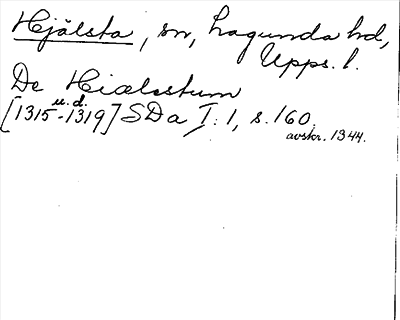 Hjälsta, sn, Lagunda hd,
Upps. l.
De Hiælstum
u. d.
[1315-1319] SDa I: 1, s. 160.
avskr. 1344.